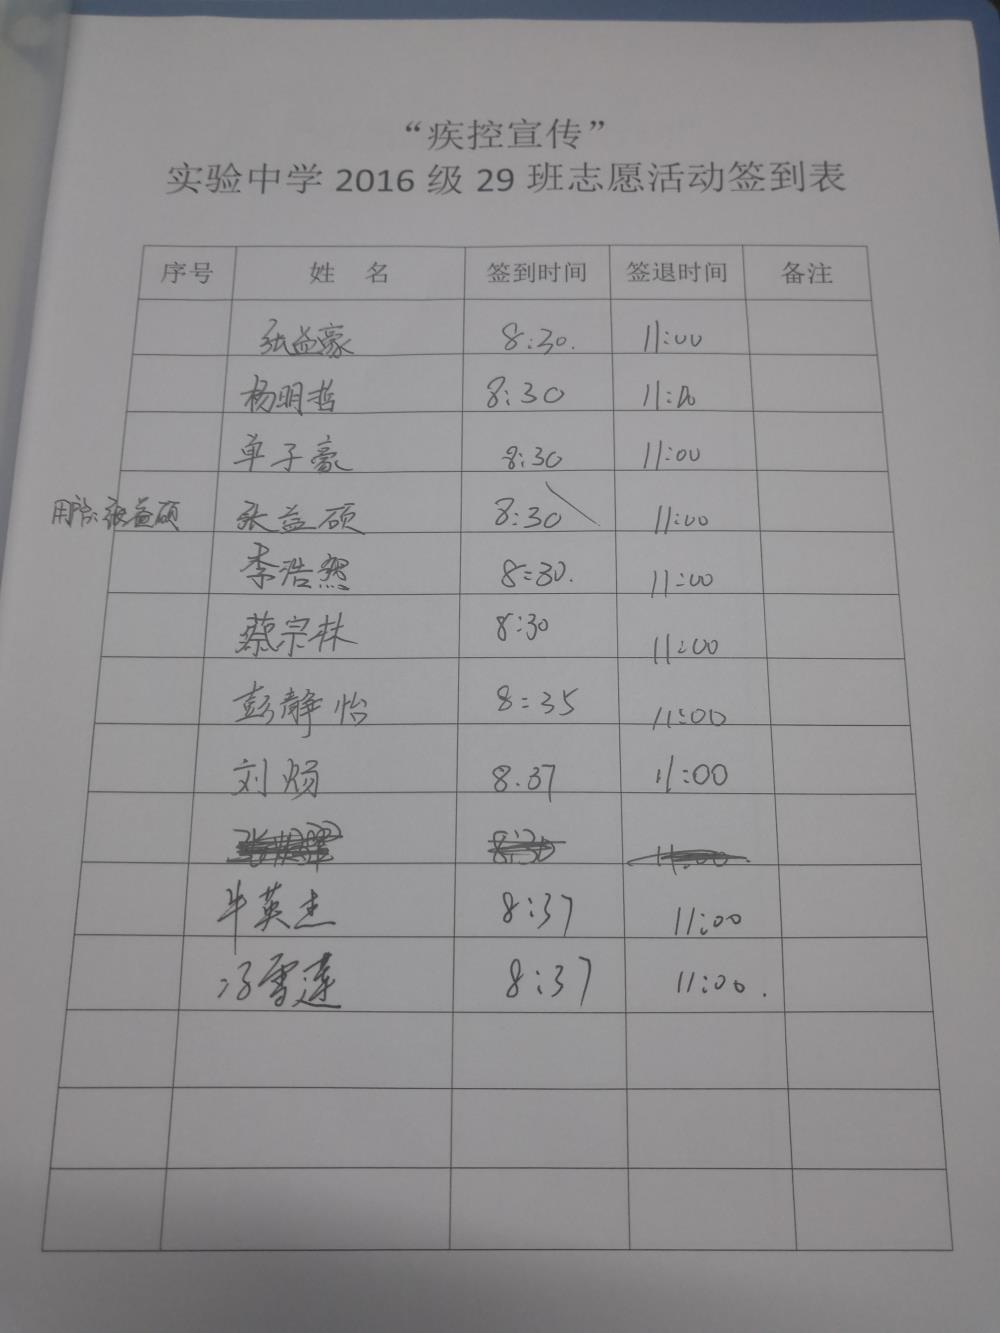 “疾控宣传”
实验中学 2016 级 29 班志愿活动签到表
序号 姓 名 签到时间 签退时间 备注
张益豪 8:30. 11:00
杨明哲 8:30 11:00
单子豪 8:30 11:00
张益硕 张益硕 8:30 11:00
李浩然 8:30. 11:00
蔡宗林 8:30 11:00
彭静怡 8:35 11:00
刘炀 8.37 11:00
8:30 11:00
牛英杰 8:37 11:00
冯雪莲 8:37 11:00.